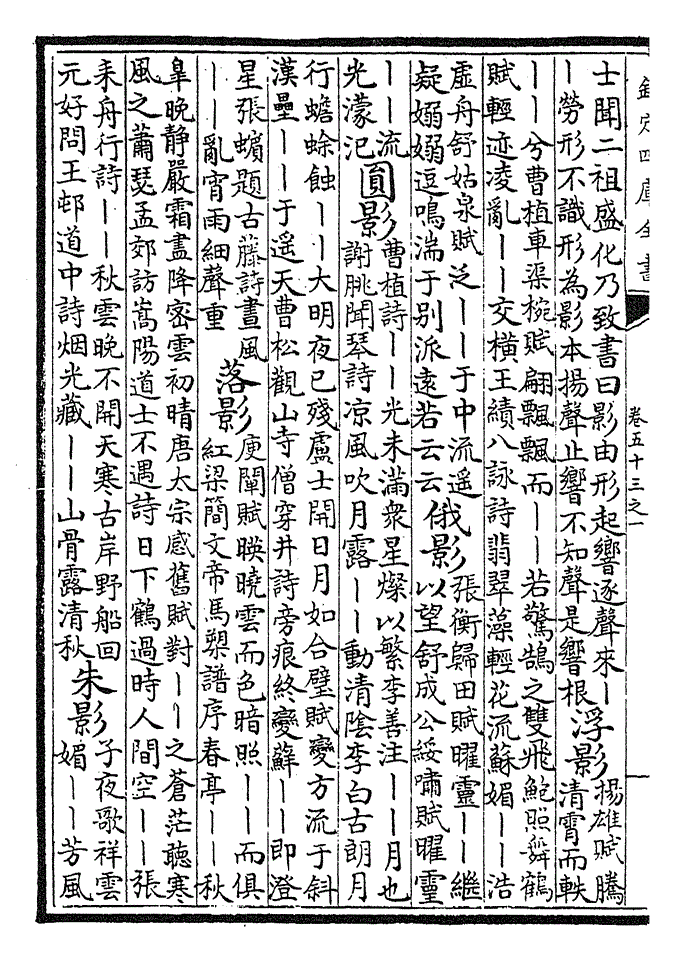 欽定四庫全書
卷五十三之一
士聞二祖盛化乃致書曰影由形起響逐聲來丨
丨勞形不識形為影本揚聲止響不知聲是響根
浮影
揚雄賦騰
清霄而軼
丨丨兮曹植車渠椀賦翩飄飄而丨丨若驚鵠之雙飛鮑照舞鶴
賦輕迹凌亂丨丨交橫王績八詠詩翡翠藻輕花流蘇媚丨丨浩
虛舟舒姑泉賦泛丨丨于中流遥
疑嫋嫋逗鳴湍于别派遠若云云
俄影
張衡歸田賦曜靈丨丨繼
以望舒成公綏嘯賦曜靈
丨丨流
光濛汜
圓影
曹植詩丨丨光未滿衆星燦以繁李善注丨丨月也
謝朓聞琴詩凉風吹月露丨丨動清陰李白古朗月
行蟾蜍蝕丨丨大明夜已殘盧士開日月如合璧賦變方流于斜
漢疊丨丨于遥天曹松觀山寺僧穿井詩旁痕終變蘚丨丨即澄
星張蠙題古藤詩晝風
丨丨亂宵雨細聲重
落影
庾闡賦暎曉雲而色暗照丨丨而俱
紅梁簡文帝馬槊譜序春亭丨丨秋
臯晚静嚴霜晝降密雲初晴唐太宗感舊賦對丨丨之蒼茫聽寒
風之蕭瑟孟郊訪嵩陽道士不遇詩日下鶴過時人間空丨丨張
耒舟行詩丨丨秋雲晚不開天寒古岸野船回
元好問王邨道中詩烟光藏丨丨山骨露清秋
朱影
子夜歌祥雲
媚丨丨芳風